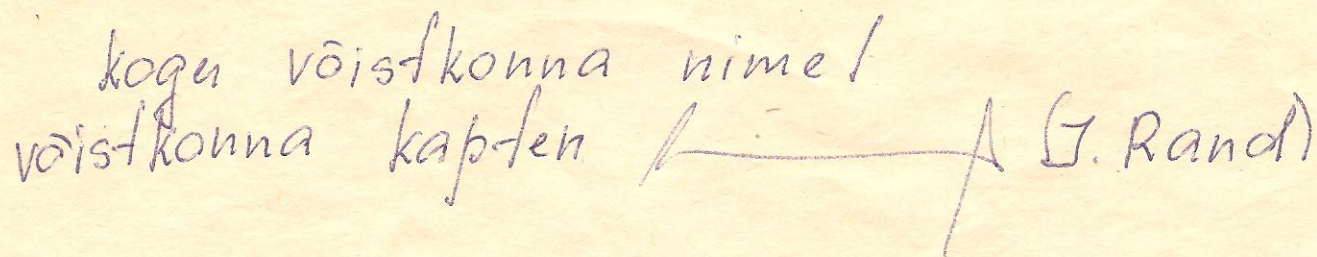 kogu võistkonna nimel
võistkonna kapten (J. Rand)